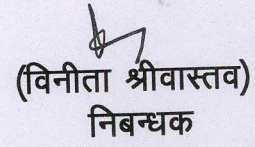 (विनीता श्रीवास्तव)
निबन्धक